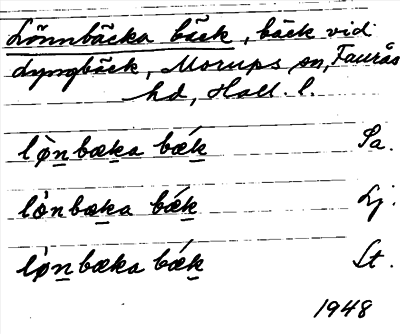 Lönnbäcka bäck, bäck vid
Lyngbäck, Morups sn, Faurås
hd, Hall. l.
lǫ̀nbæka bǽk Sa.
lònbæka bǽk Lj.
lǫ̀nbæka bǽk St.
1948